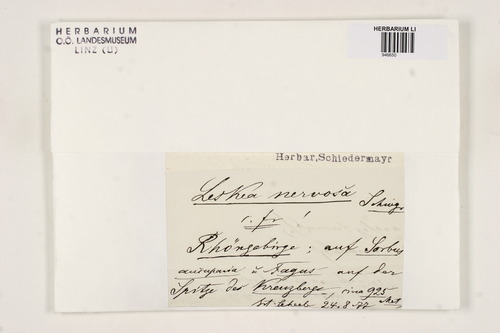 HERBARIUM
O.Ö. LANDESMUSEUM
LINZ (U)
HERBARIUM LI
Herbar, Schiedermayr
Leskea nervosa Schwgr
c. fr !
Rhöngebirge: auf Sorbus
aucuparia u Fagus auf der
Spitze des Kreuzbergs, circa 925
Met.
24.8.77